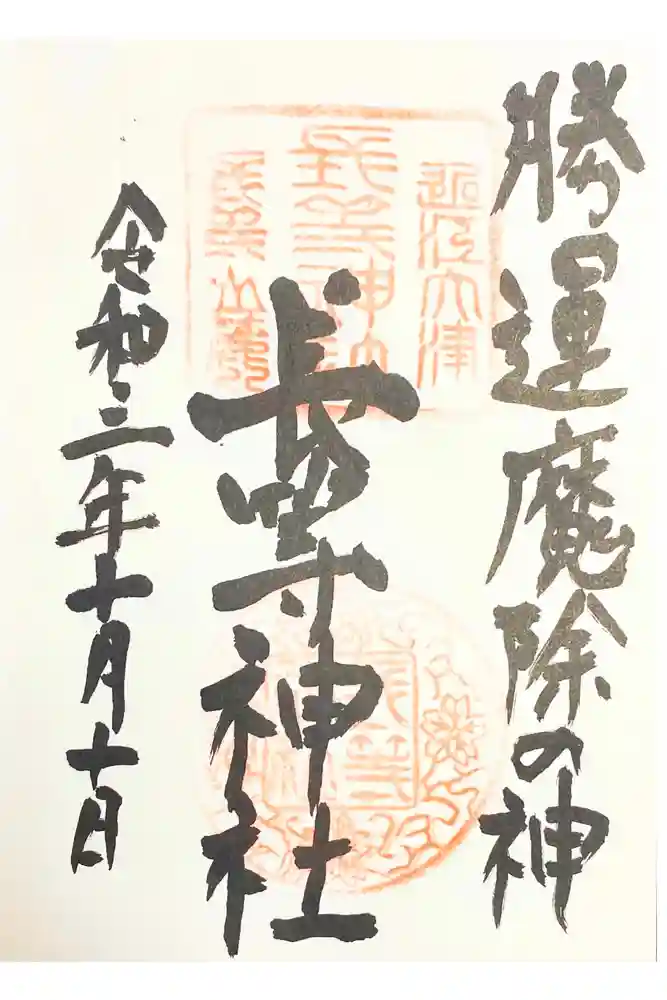 勝運魔除の神
近江大津
長等神社
長等神社
令和三年十月十日
長等